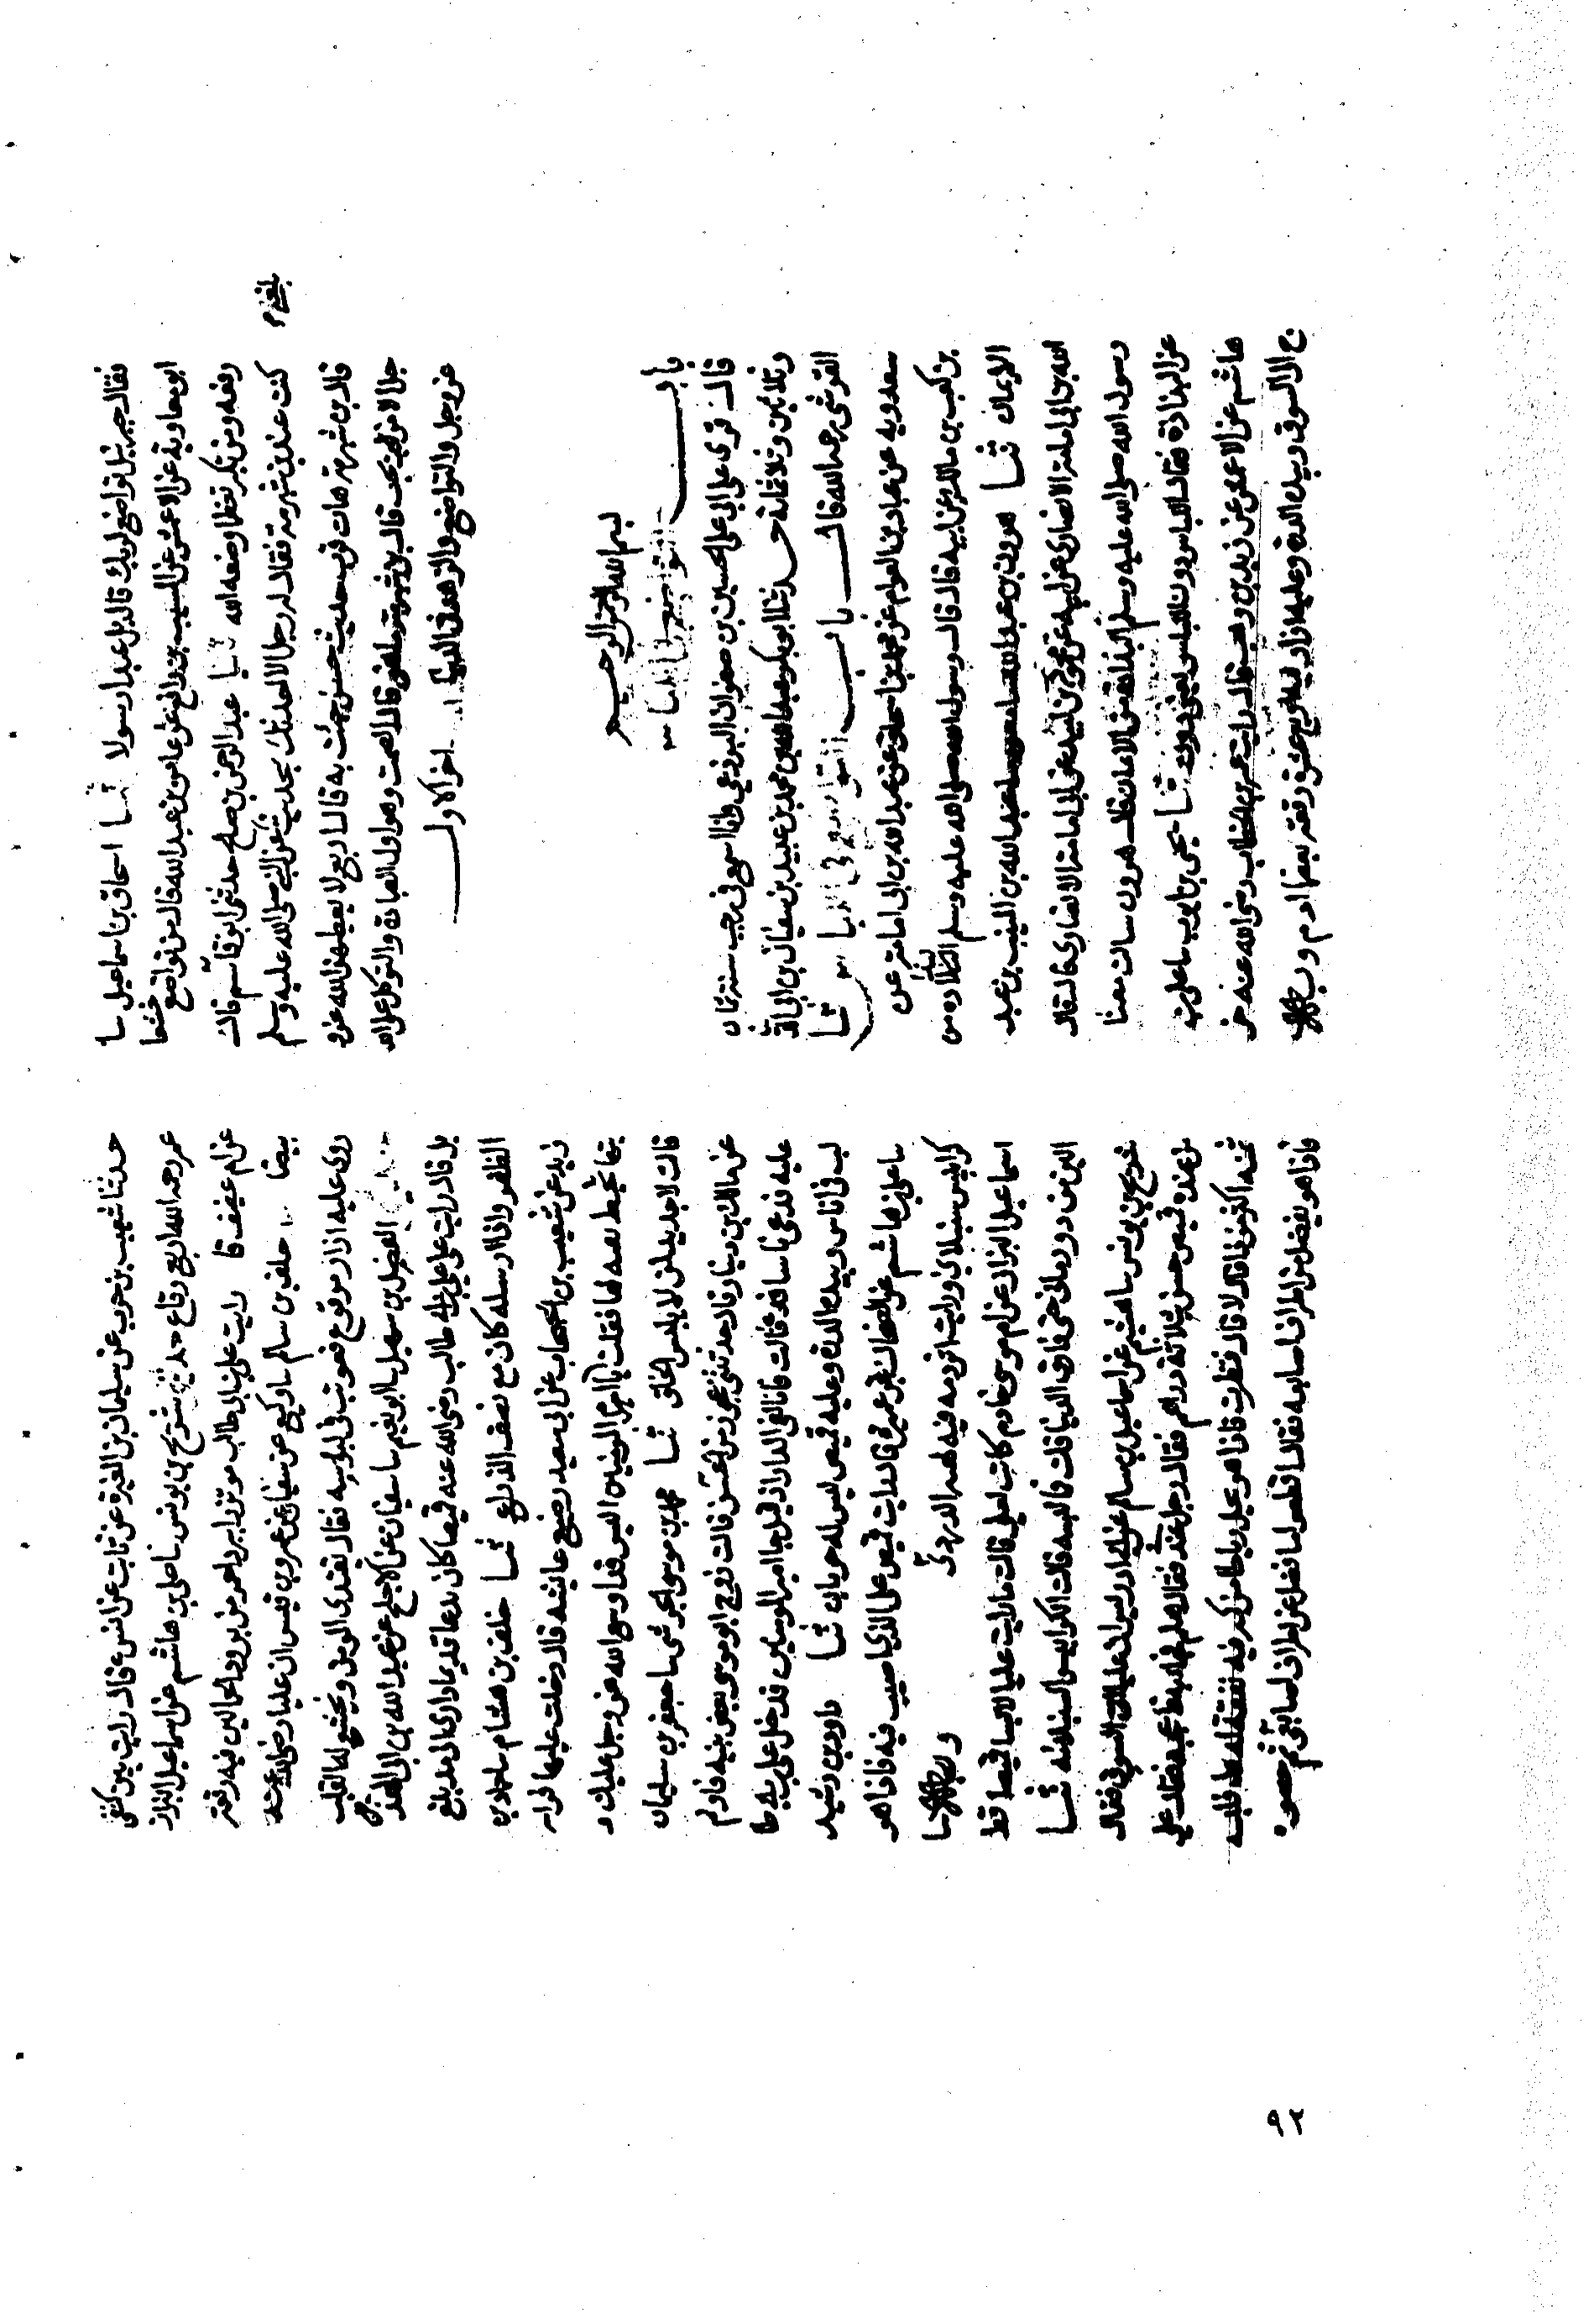 فقال جبريل تواضع لربك قال بل عبدا رسولا ثنا اسحاق بن اسماعيل سا
ابو معاوية عن الاعمش عن المسيب بن رافع عن عامر بن عبد الله قال من تواضع تخشعا
رفعه الله ومن تكبر تعظما وضعه الله ثنا عبد الرحمن بن صالح حدثني ابو قاسم قال
كنت عند بن شبرمة فقال له رجل الا احدثك بحديث عن النبي صلى الله عليه وسلم
قال بن شبرمة هات فرب حديث حسن جئت به قال اربع لا يعطيهن الله عز و
جل الا من يحب قال بن شبرمة ما هن قال الصمت وهو اول العبادة والتوكل على الله
عز وجل والتواضع والزهد في الدنيا اخر الاول
بسم الله الرحمن الرحيم
باب التواضع في اللباس
قال قرى على ابي علي الحسين بن صفوان البرذعي وانا اسمع في رجب سنة ثمان
وثلاثين وثلاثمائة حدثنا ابو بكر عبد الله بن محمد بن عبيد بن سفيان بن ابي الدنيا
القرشي رحمه الله قال باب التواضع في اللباس ثنا
سعدويه عن عباد بن العوام عن محمد بن اسحاق عن عبد الله بن ابي امامة عن
بن كعب بن مالك عن ابيه قال قال رسول الله صلى الله عليه وسلم البذاذه من
الايمان ثنا هرون بن عبد الله سا عبد الله بن المنيب بن عبد
الله بن ابي امامة الانصاري عن ابيه عن محمود بن لبيد عن ابي امامة الانصاري قال قال
رسول الله صلى الله عليه وسلم البذاذة من الايمان قال هرون سالت معنا
عن البذاذة فقال اللباس دون اللباس يعني دونه ثنا يحيى بن ايوب سا علي بن
هاشم عن الاعمش عن زيد بن وهب قال رايت عمر بن الخطاب رضي الله عنه خر
ج الى السوق وبيده الدرة وعليه ازار فيه اربع عشرة رقعة بعضها ادم وب
حدثنا شهيب بن حرب عن سليمان بن المغيرة عن ثابت عن انس قال رايت بين كتفي
عمر رحمه الله اربع رقاع حدثني شريح بن يونس سا علي بن هاشم عن اسماعيل البزاز
عن ام عفيف قا رايت علي بن ابي طالب موتزرا ببرد احمر من برود الحمالين فيه رقعة
بيضا خلف بن سالم سا وكيع عن سفيان عن عمرو بن قيس ان عليا رضي الله عنه
روى عليه ازار مرقوع فعوتب في لبوسه فقال يقتدي المومن ويخشع له القلب
الفضل بن سهل سا ابو نعيم سا سفيان عن الاجلح عن عبد الله بن ابي الهذ
يل قال رايت على علي بن ابي طالب رضي الله عنه قميصا كان مدها قديما وارى اذا مد بلغ
الظفر واذا ارسله كان مع نصف الذراع ثنا خلف بن هشام سا حماد بن
زيد عن شعيب بن الحبحاب عن ابي سعيد رضيع عائشه قال دخلت عليها فرايـ
تها تخيط نقبه لها فقلت يا ام المومنين اليس قد اوسع الله عز وجل عليك و
قالت لا جديد لمن لا يلبس الخلق ثنا محمد بن موسى الجرشي سا جعفر بن سليمان
عن مالك بن دينار قال حدثتني عجوز من الحي قالت زوج ابو موسى بعض بنيه فاولم
عليه فدعى ناسا قالت فانا لفي الدار اذ قيل جا امير المومنين فدخل علي بيده عا
لب في اناس وبيده الدرة وعليه قميص ليس له جربان ثنا داود بن رشيد
سا علي بن هاشم عن الضحاك بن عمير قال رايت قميص علي الذي اصيب فيه فاذا هو
كرابيس سنبلاني ورايت اثر دمه فيه كهيئة الدردي و سا
اسماعيل البزاز عن ام موسى خادم كانت لعلي قالت ما رايت عليا لابسا قميصا قط
الين من دود ملا حتى فارق الدنيا قلت فما لبسه قالت الكرابيس السنبلانيه ثنا
شريح بن يونس سا هشيم عن اسماعيل بن سالم عن ابي ادريس ان عليا اتى السوق فقال
من عنده قميص حسن بثلاثة دراهم فقال رجل عندي فقال هلم فجا به فاعجبه فقال علي
ثمنه اكثر من ذا قال لا قال فنظرت فاذا هو يحل رباطا من كمه فيه نفقة فاعطاه فلبسه
فاذا هو يفضل عن اطراف اصابعه فقال اقطعوا ما فضل عن اطراف اصابعي ثم حصوه
٩٢